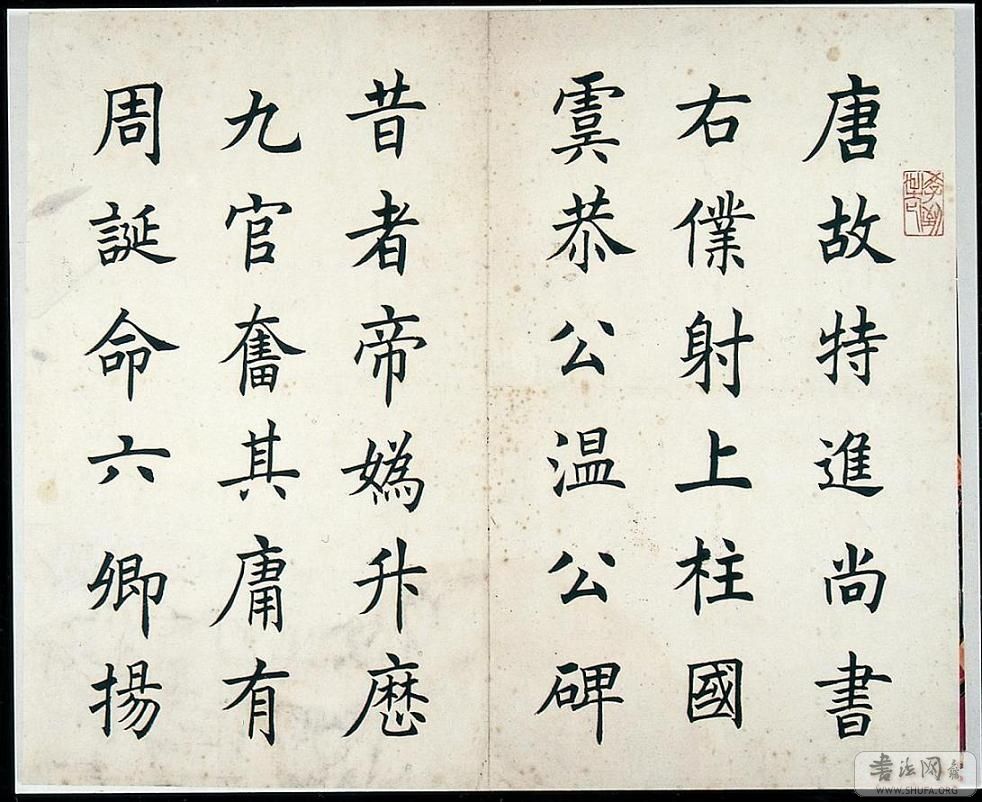 唐故特進尚書
右僕射上柱國
虞恭公温公碑
昔者帝嬀升歷
九官奮其庸有
周誕命六卿揚
书法网
WWW.SHUFA.ORG